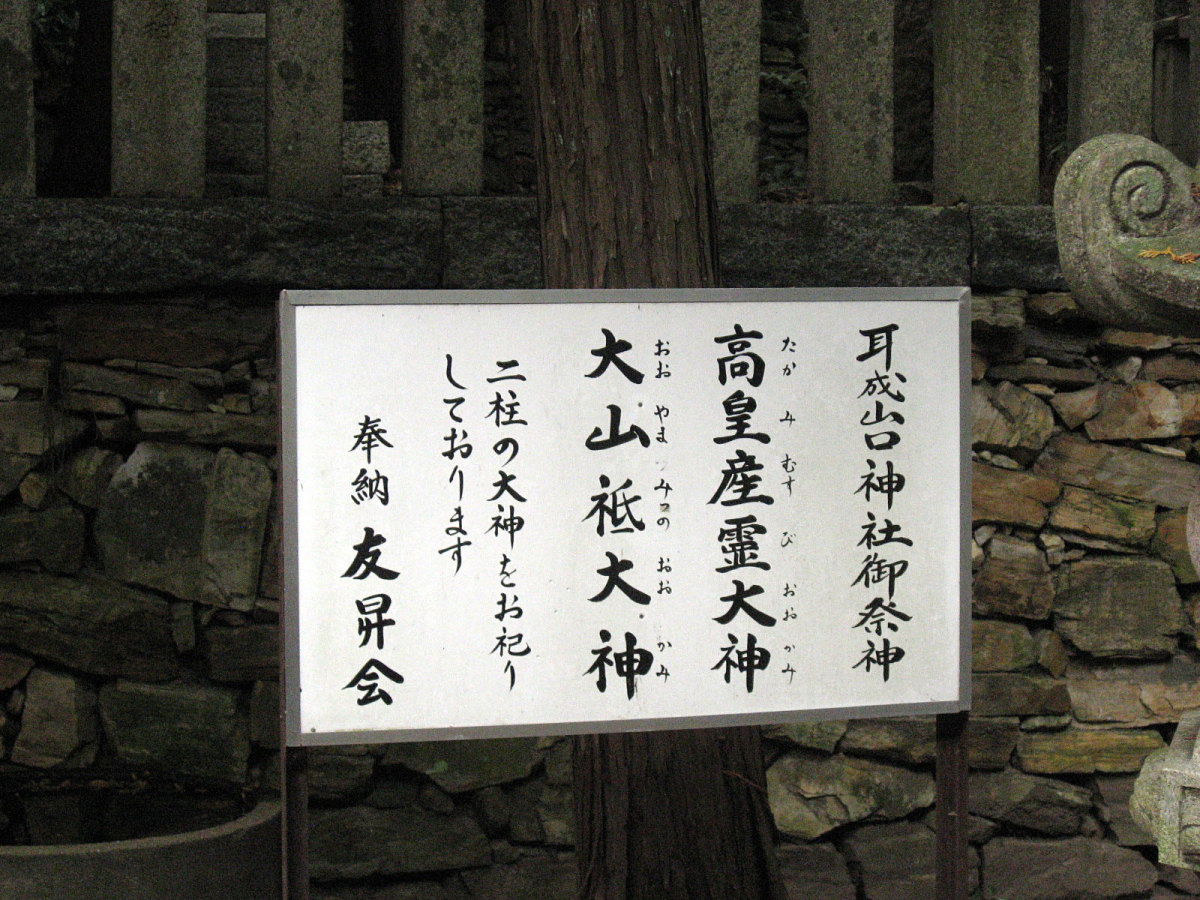 耳成山口神社御祭神
たかみむすびおおかみ
高皇産霊大神
おおやまつみのおおかみ
大山祇大神
二柱の大神をお祀り
しております
奉納 友昇会